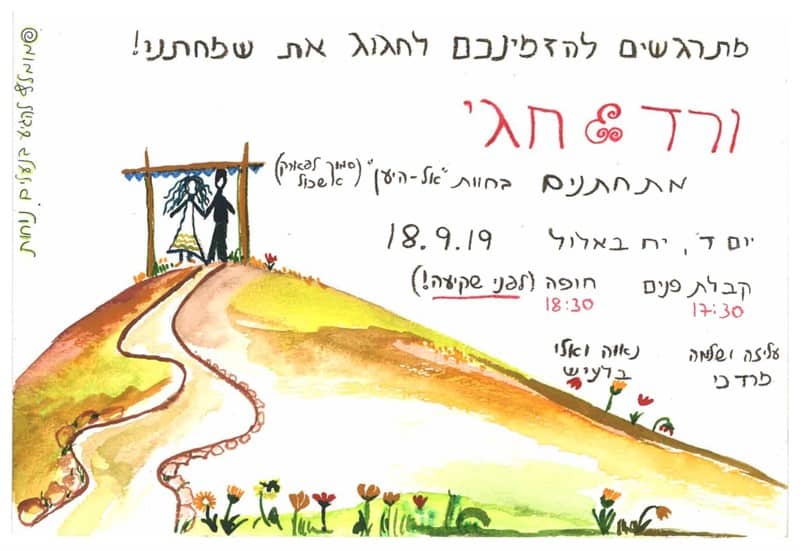 מתרגשים להזמינכם לחגוג את שמחתנו!
ורד & חגי
מתחתנים בחוות "אל-היען" (סמוך לפארק אשכול)
יום ד', יח באלול 18.9.19
קבלת פנים חופה (לפני שקיעה!)
17:30 18:30
עליזה ושלמה נאווה ואלי
מרדכי ברעיש